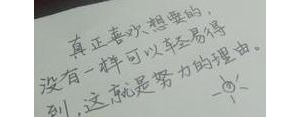 真正喜欢想要的,
没有一样可以轻易得
到,这就是努力的理由。